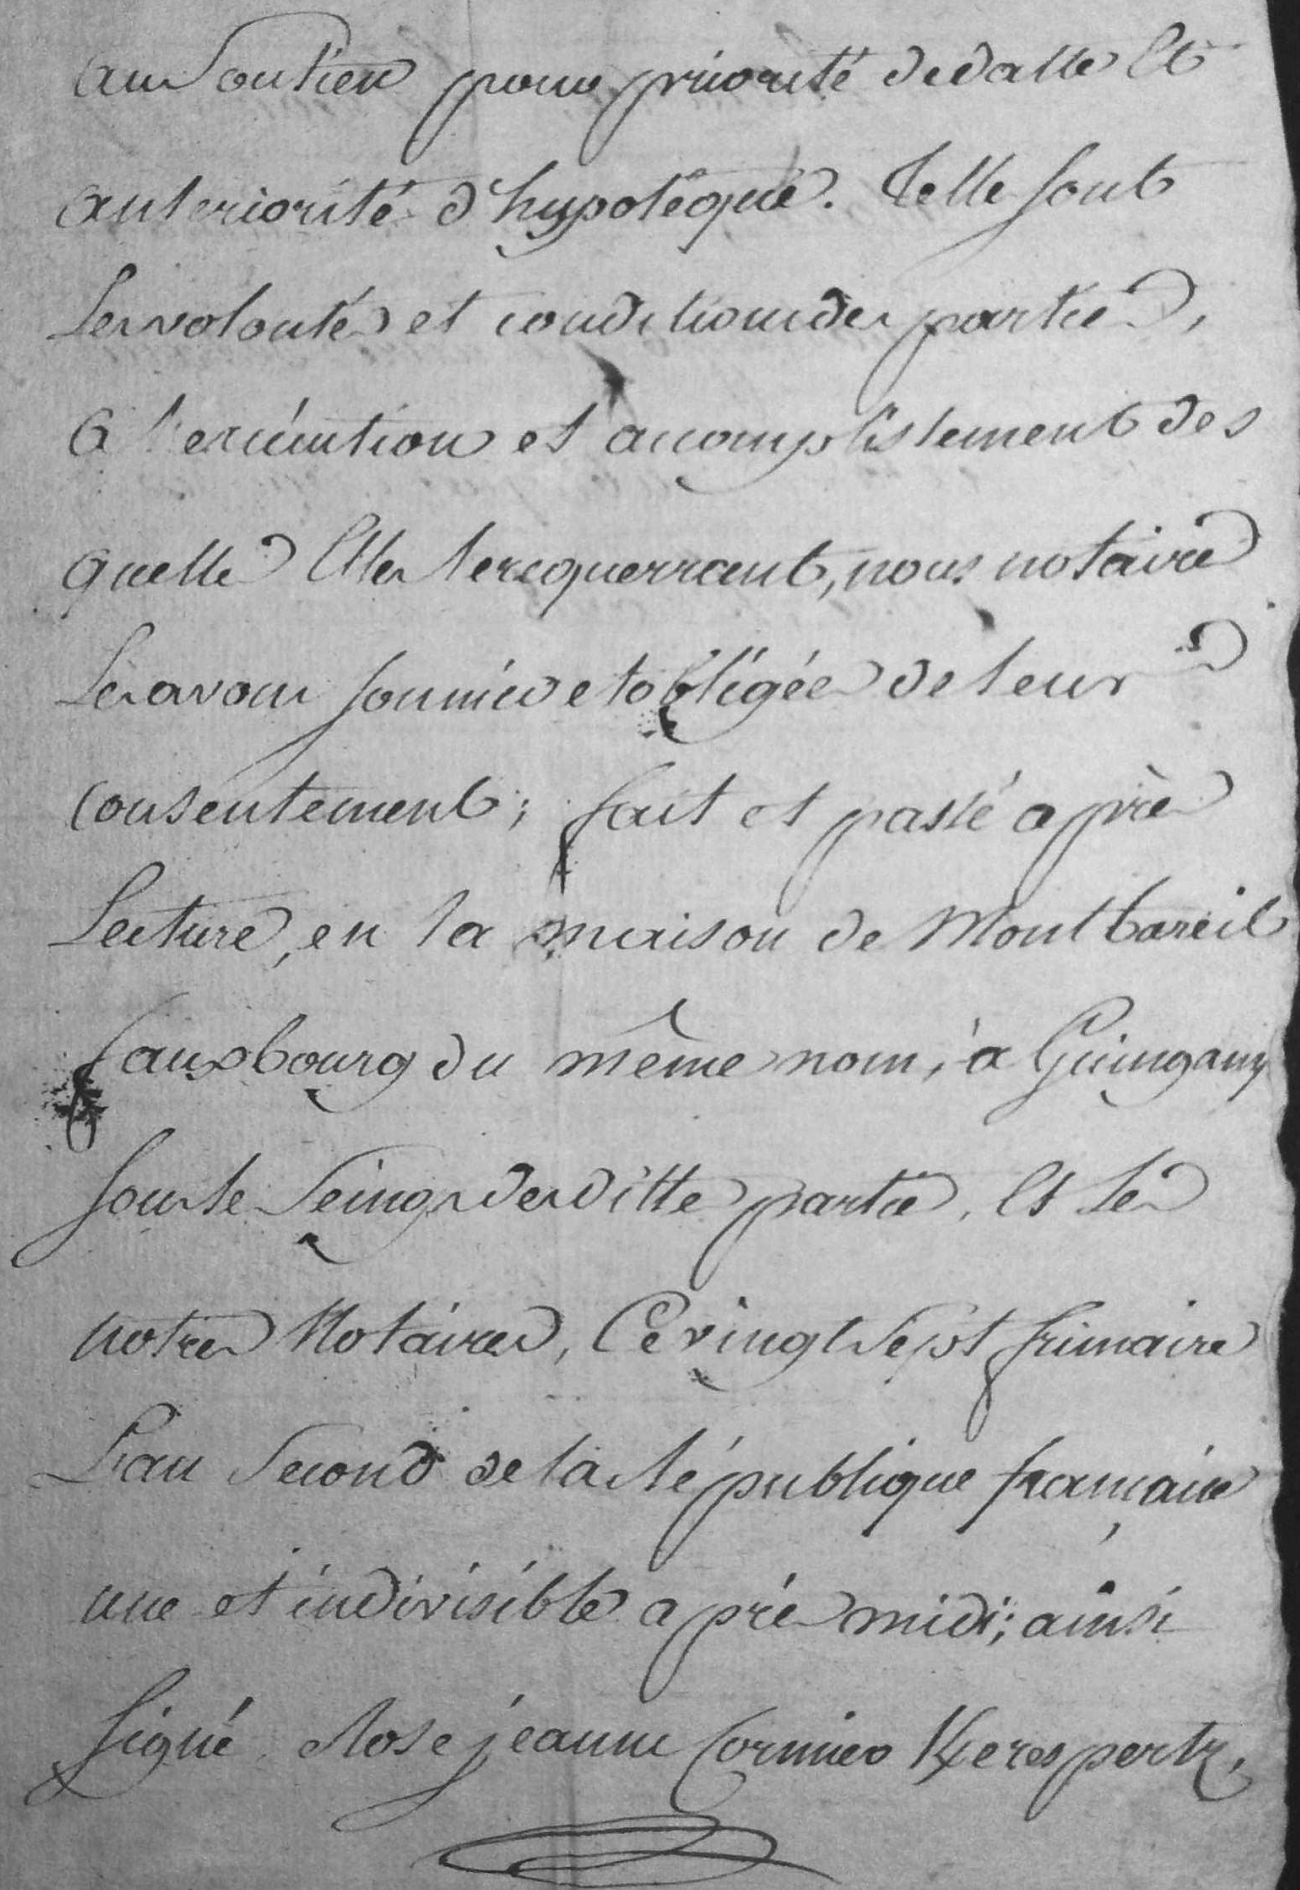 au Soutien pour priorité de datte Et
anteriorité d'hypoteque. Telle sont
Les volontés et conditions des parties,
a l'execution et accomplissement des
quelles Elles se requerrant, nous notaires
Les avons soumis et obligées de leurs
consentement; fait et passé après
Lecture, en la maison de Montbareil
fauxbourg du même nom, à Guingamp
sous le Seings des dittes parties, Et les
notres Notaires, Ce vingt Sept frimaire
L'an Second de la république française
une et indivisible après midi; ainsi
Signé Rose jeanne Cormier